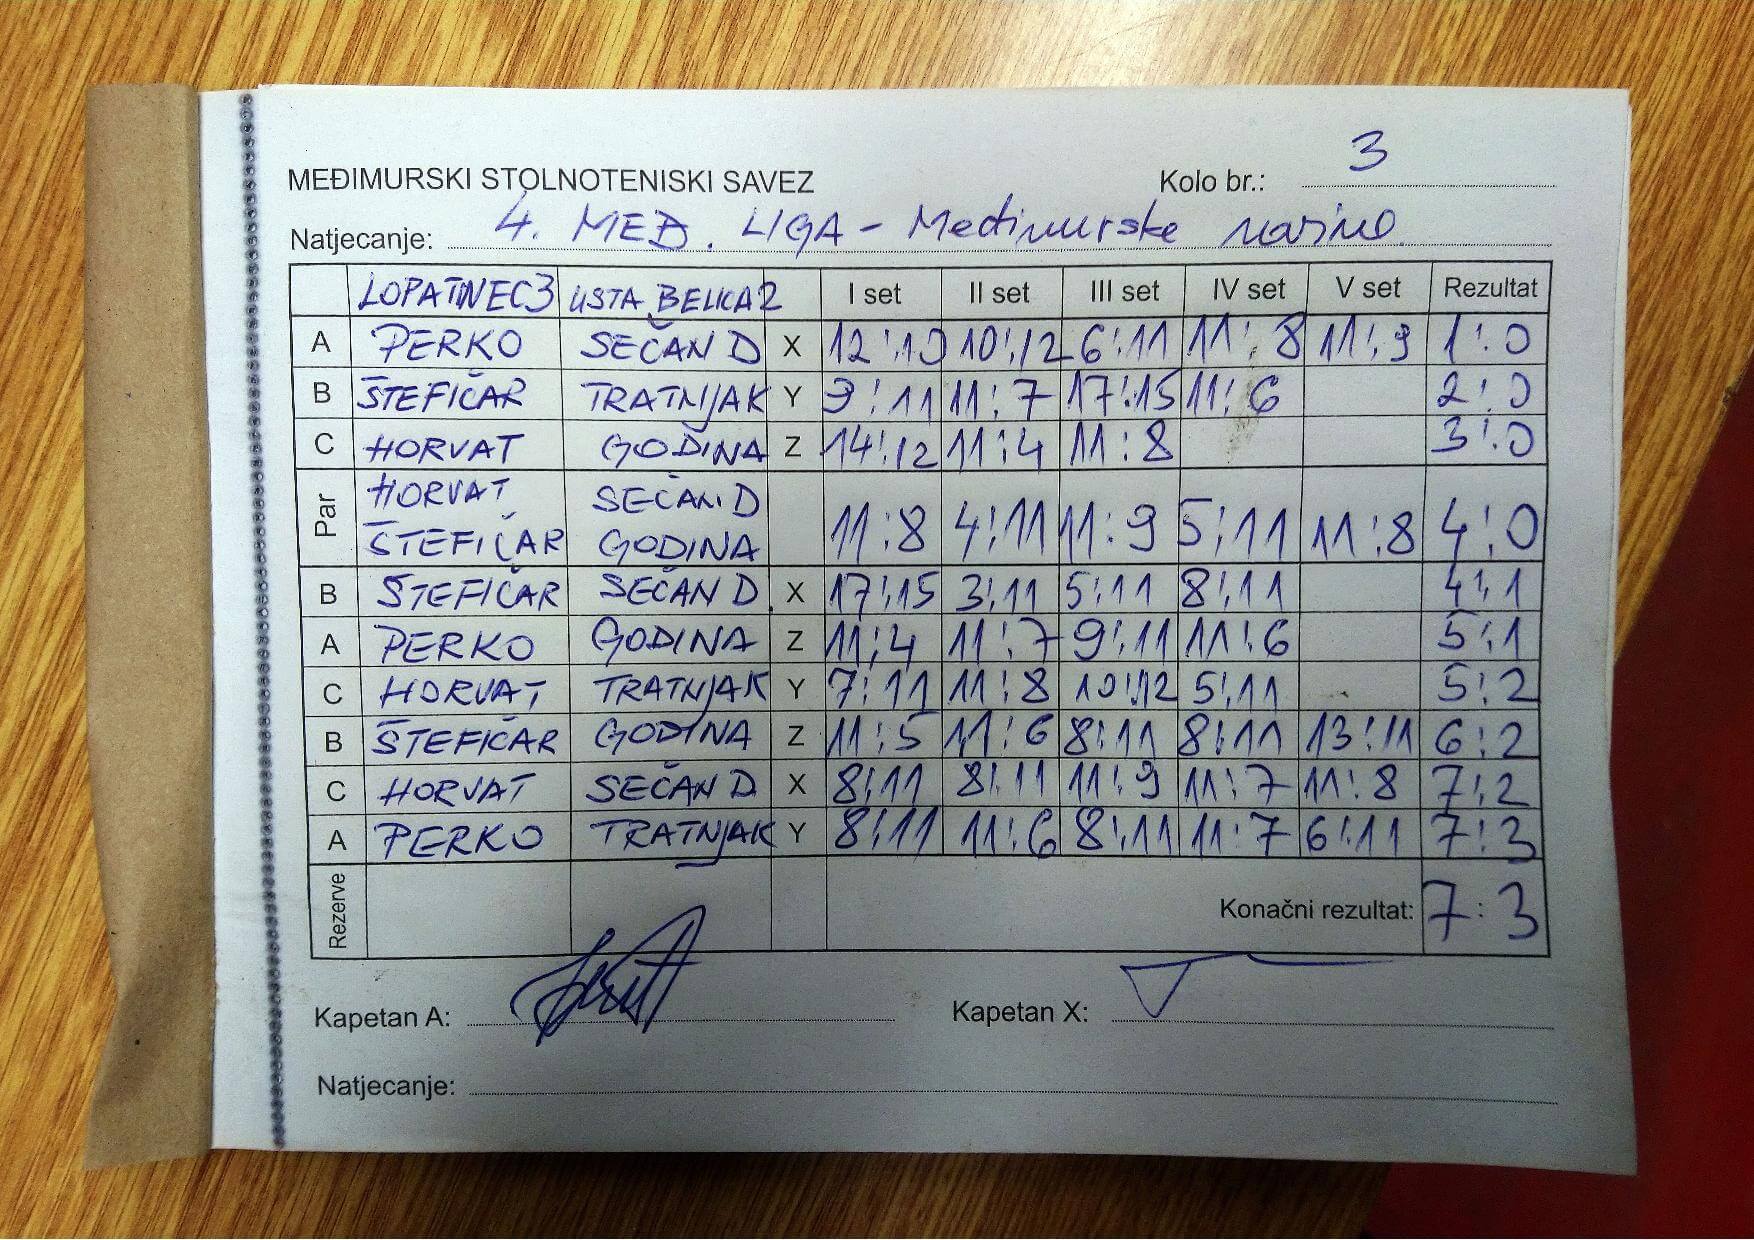 MEĐIMURSKI STOLNOTENISKI SAVEZ Kolo br.: 3
Natjecanje: 4. MEĐ. LIGA - Međimurske novine
LOPATINEC 3 USTA BELICA 2 I set II set III set IV set V set Rezultat
A PERKO SEČAN D X 12:10 10:12 6:11 11:8 11:9 1:0
B ŠTEFIČAR TRATNJAK Y 9:11 11:7 17:15 11:6 2:0
C HORVAT GODINA Z 14:12 11:4 11:8 3:0
Par HORVAT ŠTEFIČAR SEČAN D GODINA 11:8 4:11 11:9 5:11 11:8 4:0
B ŠTEFIČAR SEČAN D. X 17:15 3:11 5:11 8:11 4:1
A PERKO GODINA Z 11:4 11:7 9:11 11:6 5:1
C HORVAT TRATNJAK Y 7:11 11:8 10:12 5:11 5:2
B ŠTEFIČAR GODINA Z 11:5 11:6 8:11 8:11 13:11 6:2
C HORVAT SEČAN D. X 8:11 8:11 11:9 11:7 11:8 7:2
A PERKO TRATNJAK Y 8:11 11:6 8:11 11:7 6:11 7:3
Rezerve Konačni rezultat: 7:3
Kapetan A: Kapetan X:
Natjecanje: